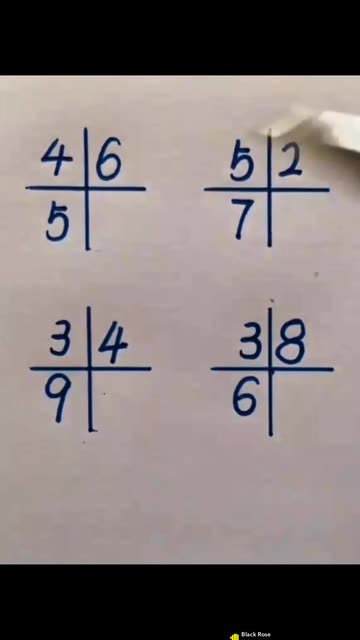 4 6 5 2
5 7
3 4 3 8
9 6
Black Rose